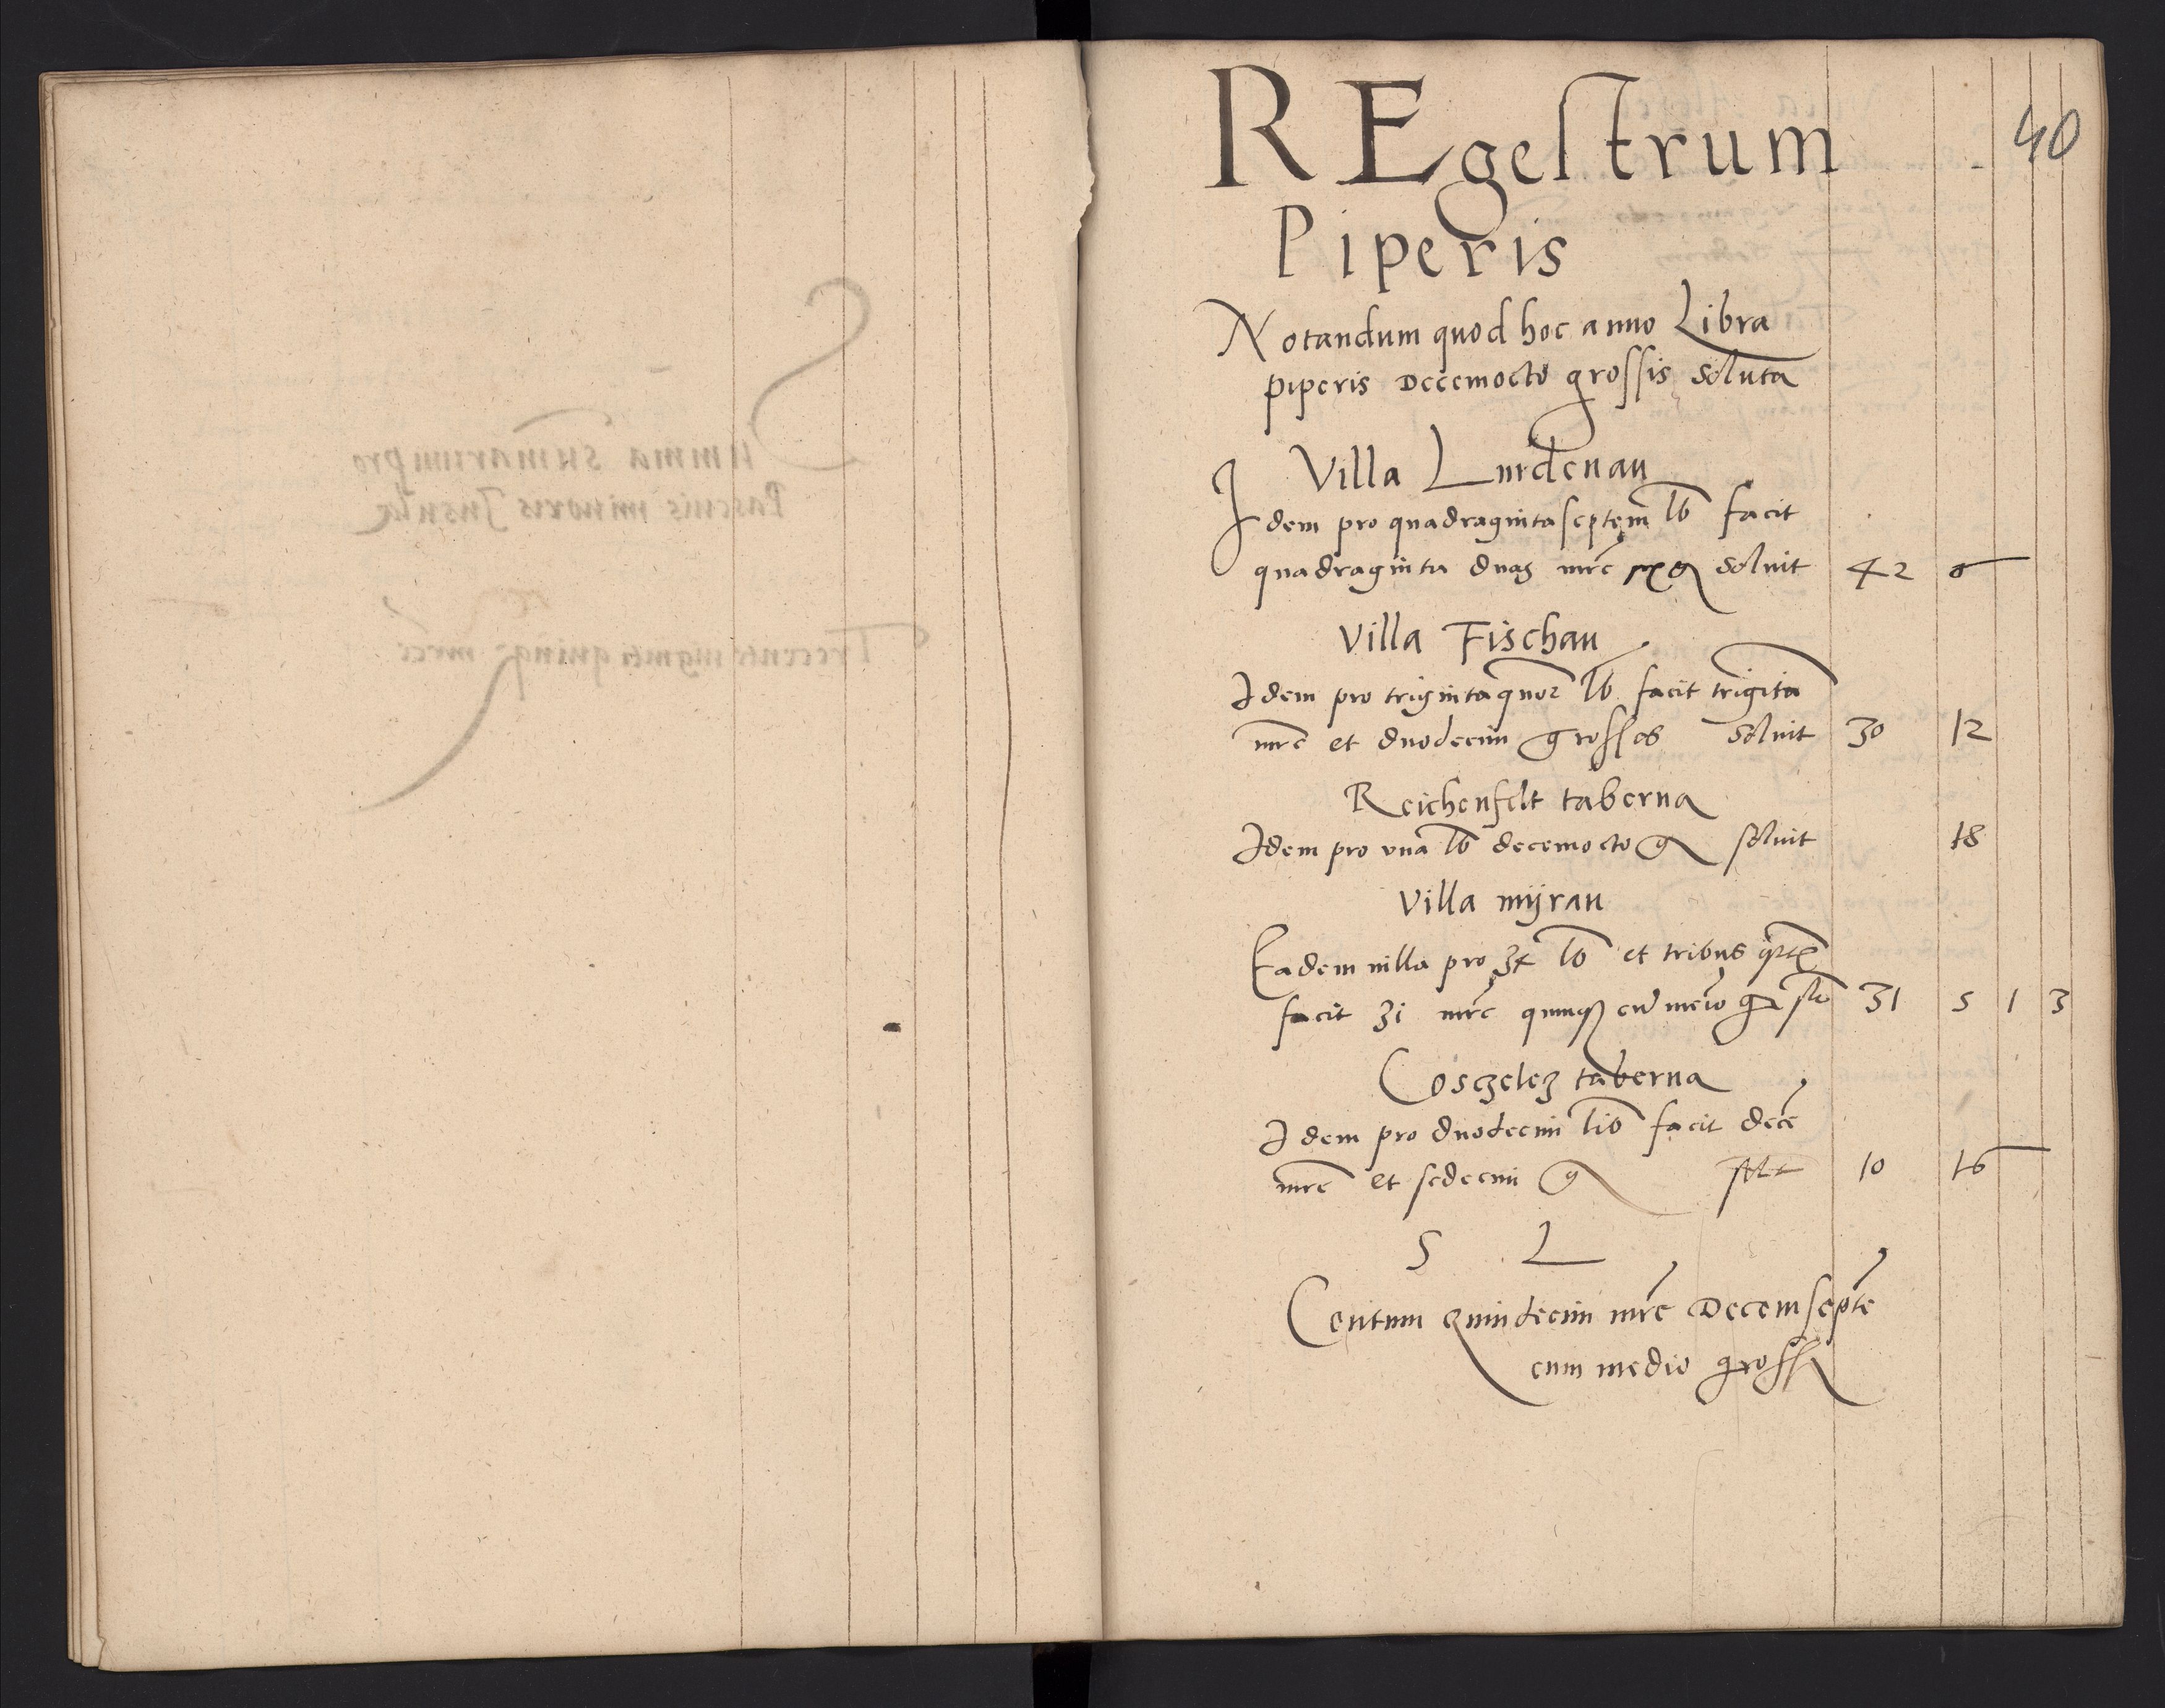 40
REgestrum
Piperis
Notandum quod hoc anno Libra
piperis Decemocto grossis soluta
Villa Lurdenau
Idem pro quadragintaseptem lb facit
quadraginta duas mrc sex g soluit 42 6
Villa Fischau
Idem pro trigintaquor lb facit trigita
mrc et duodecim grossos soluit 30 12
Reichenfelt taberna
Idem pro vna lb decemocto g soluit 18
Villa mÿrau
Eadem uilla pro 34 lb et tribus qrt
facit 31 mrc quinq cu meio gr 31 5 1 3
Cosczelez taberna
Idem pro duodecim lib facit dece
mrc et sedecim g solt 10 16
S L
Centum Quindecim mrc Decemsepte
cum medio gross